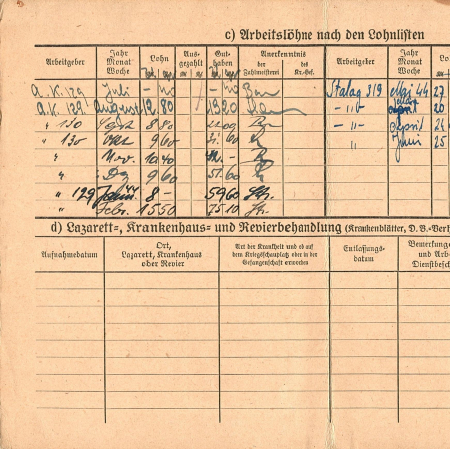 c) Arbeitslöhne nach den Lohnlisten
Arbeitgeber Jahr Monat Woche Lohn Ausgezahlt Guthaben Anerkenntnis der Zahlmeisterei des Kr.-Gef. Arbeitgeber Jahr Monat Woche Lo
A.K. 129 Juli - 40 - 40 Stalag 319 Mai 44 27
A.K. 129 August 12 80 13 20 - " - 20
" 130 Sept 8 80 - " - April 24
" 130 Okt 9 60 " Juni 25
" Nov. 10 40
" Dez 9 60 51. 60
" 129 Jan. 44 8 - 59 60
" Febr. 15 50 75 10
d) Lazarett-, Krankenhaus- und Revierbehandlung (Krankenblätter, D.B.-Ver
Aufnahmedatum Ort, Lazarett, Krankenhaus oder Revier Art der Krankheit und ob auf dem Kriegsschauplatz oder in der Gefangenschaft erworden Entlassungsdatum Bemerkunge und Arb Dienstbesch